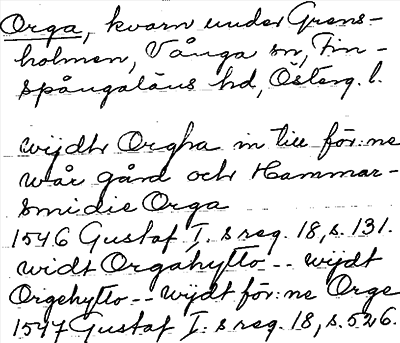 Orga, kvarn under Grens-
holmen, Vånga sn, Fin-
spångaläns hd, Österg. l.
wijdtr Orgha in till för:ne
wår gård och Hammar-
smidie Orga
1546 Gustaf I. s reg. 18, s. 131.
widt Orgahytto -- wijdt
Orgehytto -- wijdt för:ne Orge
1547 Gustaf I: s reg. 18, s. 526.